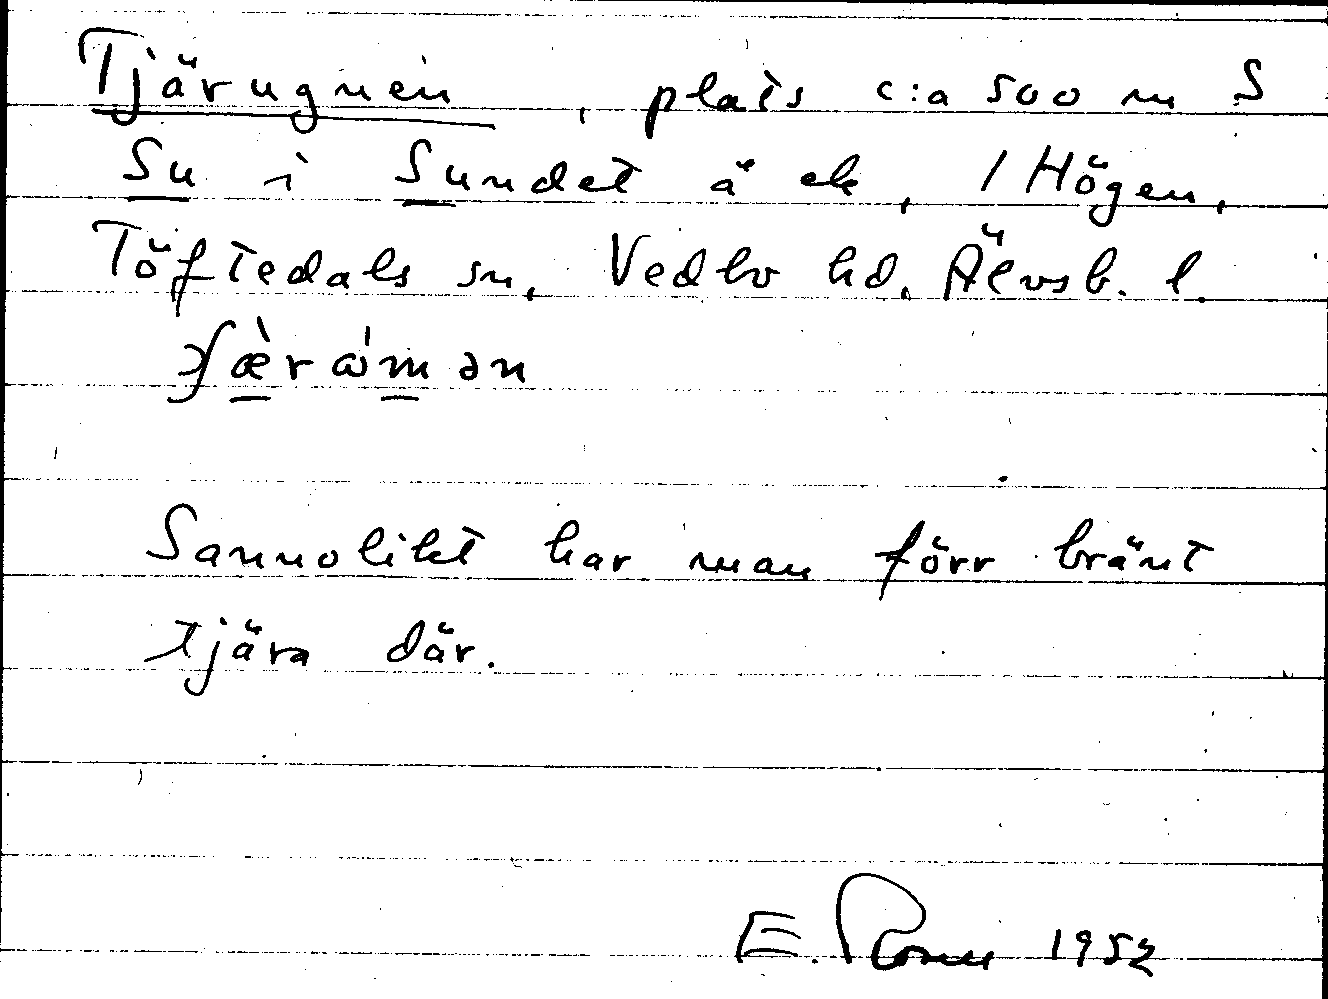 Tjärugnen, plats c:a 500 m S
Su i Sundet å ek, 1 Högen,
Töftedals sn, Vedbo hd, Älvsb. l.
Sannolikt har man förr bränt
tjära där.
E. 1952